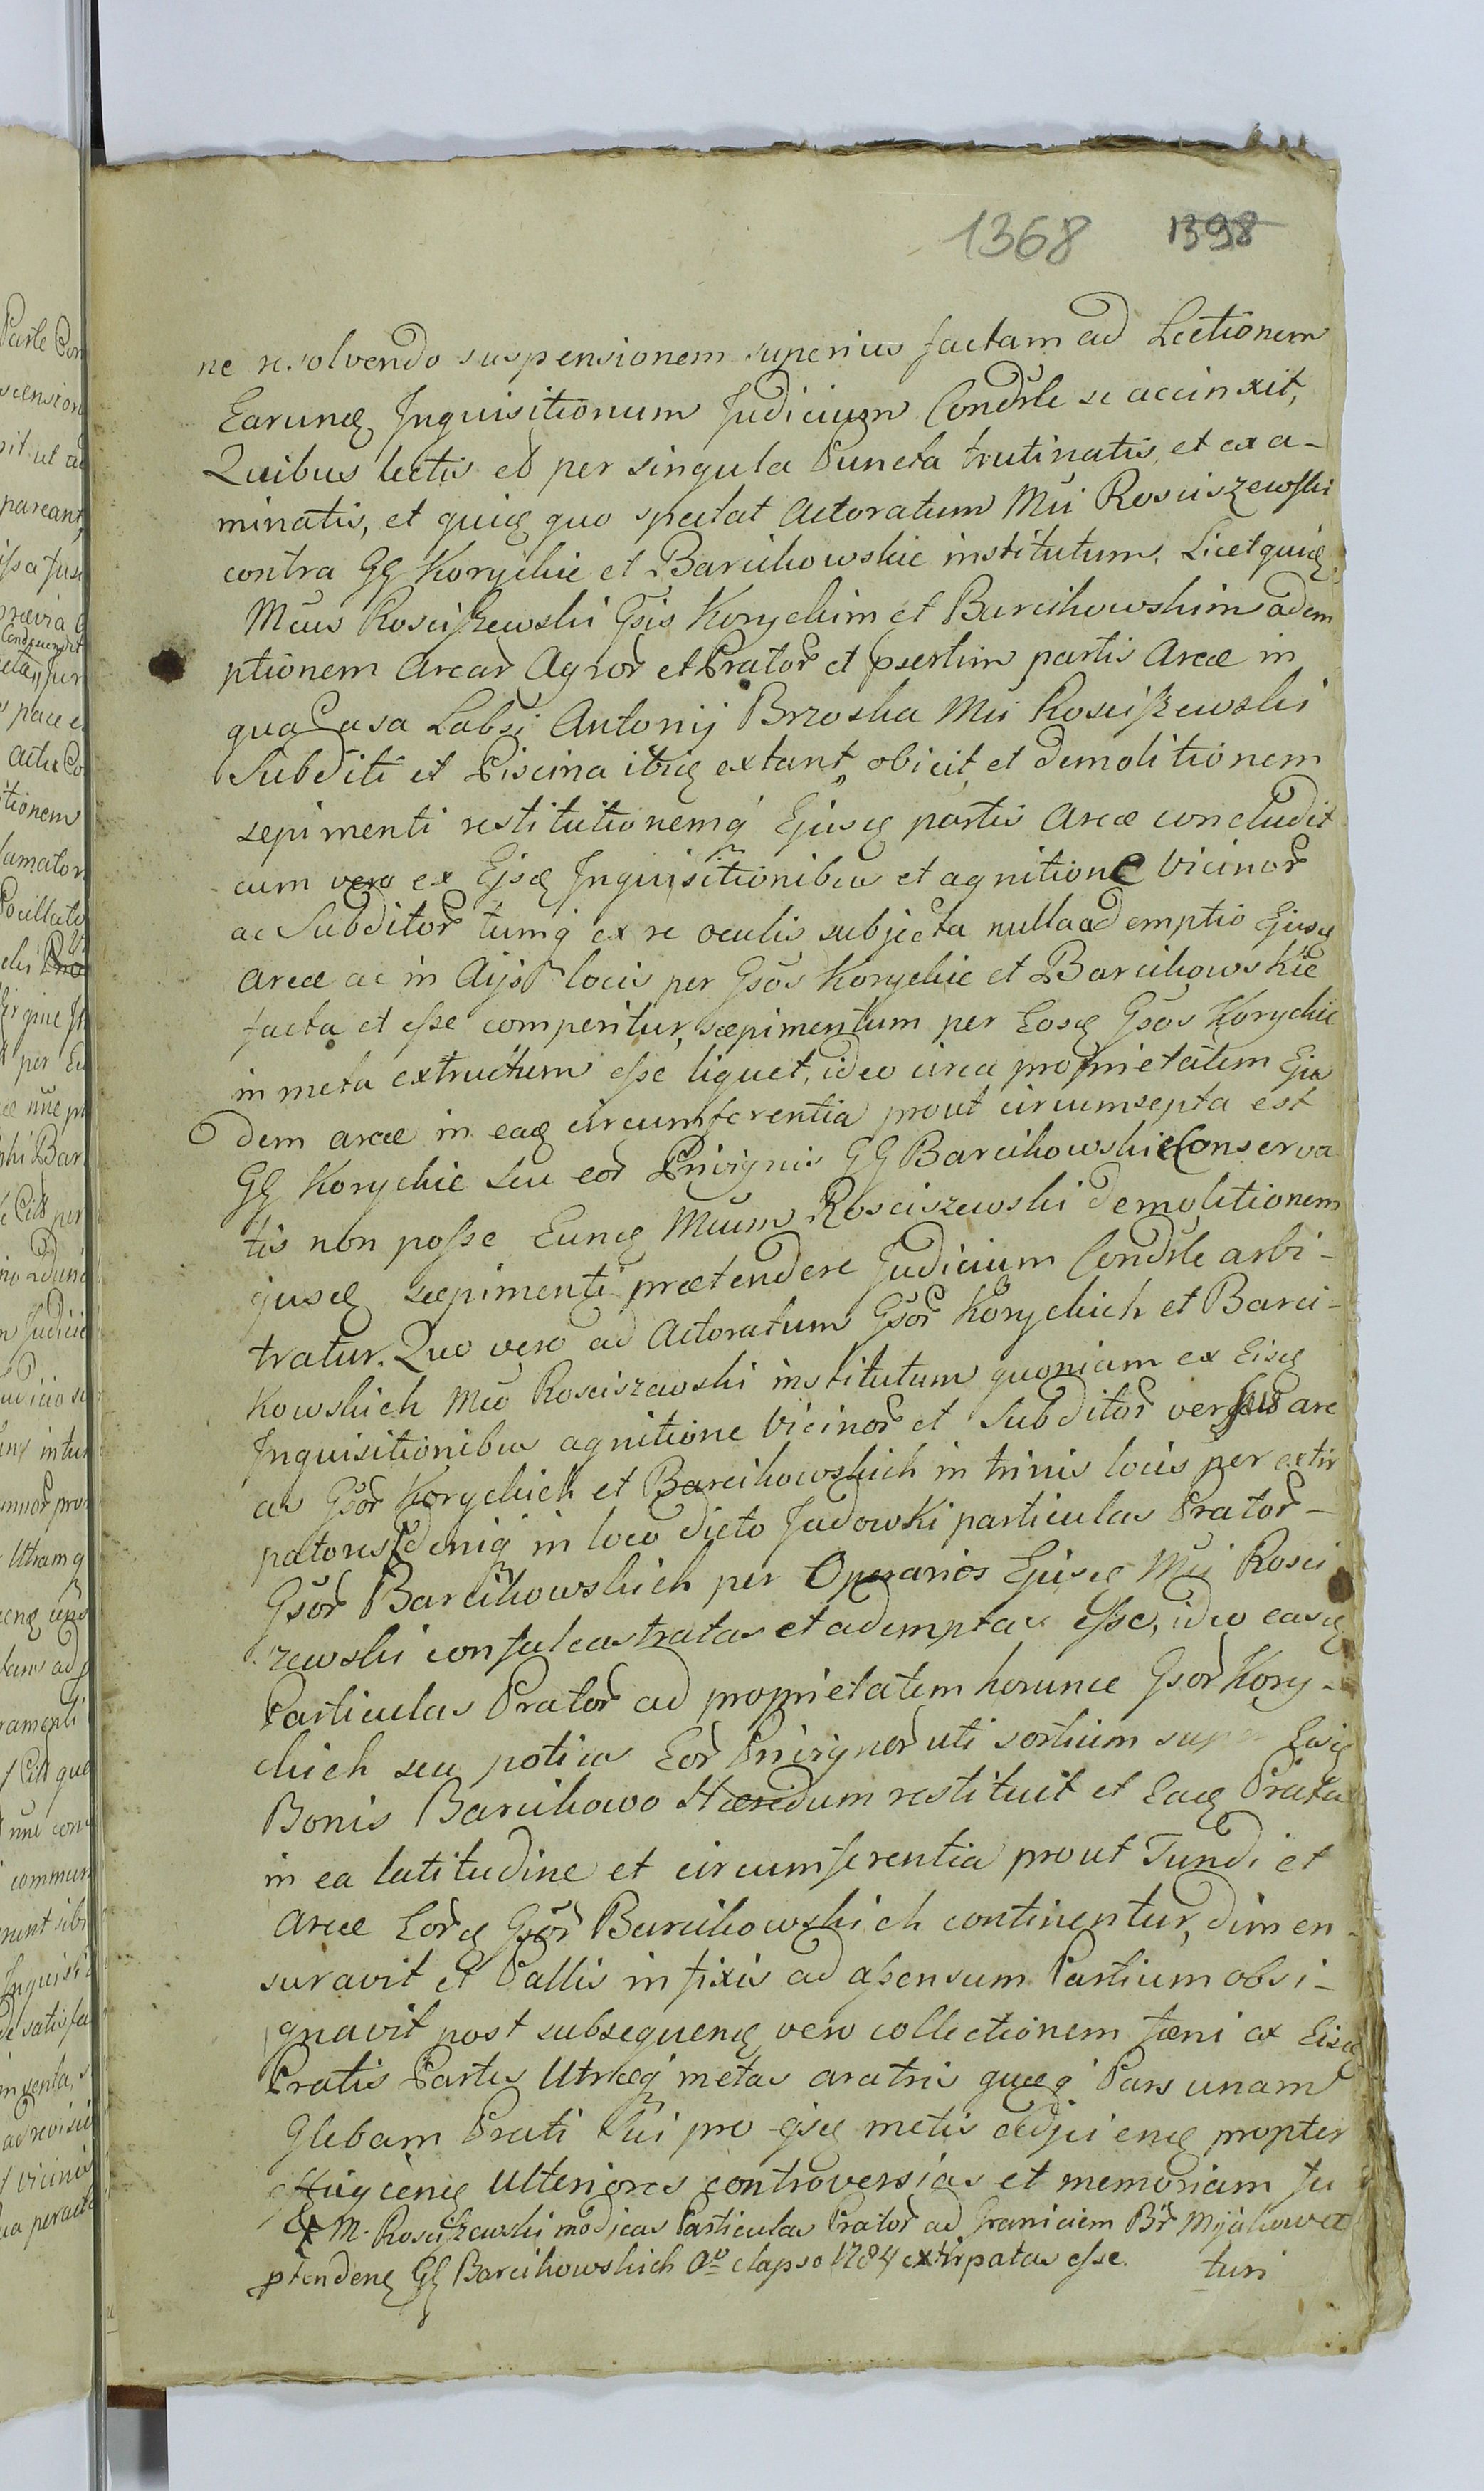 1368 1398
ne resolvendo suspensionem superius factam ad Lectionem
Earundę Inquisitionum Judicium Condrle se accinxit,
Quibus lectis et per singula Puncta trutinatis, et exa-
minatis, et quidę quo spectat Actoratum Mĩi Rosciszewski
contra GG Koryckie et Barcikowskie institutum. Licet quidę
Mĩcus Rosciszewski Gsis Koryckim et Barcikowskim adem
ptionem Arear Agror et Prator et psertim partis Areæ in
qua Casa Labsi Antonij Brzoska Mĩi Rosciszewski
Subditi et Piscina ibidę extant, obicit et demolitionem
sepimenti restitutionemq Ejusdę partis Areæ concludit
cum vero ex Ejsdę Inquisitionibus et agnitione Vicinor
ac Subditor tumq ex re oculis subjecta nulla ademptio Ejusdę
Areæ ac in Aijs locis per Gsos Koryckie et Barcikowskie
facta et esse comperitur, sæpimentum per Eosdę Gsos Koryckie
in meta extructum esse liquet, ideo circa proprietatem Ejus
dem areæ in eadę circumferentia prout circumsepta est
GG Koryckie seu eor Privignis GG Barcikowskie Conserva
tis non posse Eundę Mĩcum Rosciszewski demolitionem
ejusdę sæpimenti prætendere Judicium Condrle arbi-
tratur. Quo vero ad Actoratum Gsor Koryckich et Barci-
kowskich Mĩco Rosciszewski institutum quoniam ex Eisdę
Inquisitionibus agnitione Vicinor et Subditor versus are
as Gsor Koryckich et Barcikowskich in trinis locis per extir
patores deniq in loco dicto Judowki particulas Prator-
Gsor Barcikowskich per Operarios Ejusdę Mĩi Rosci
zewski confulcastratas et ademptas esse, ideo easdę
Particulas Prator ad proprietatem horunce Gsor Kory-
ckich seu potius Eor Privignor uti sortium super Eisdę
Bonis Barcikowo Hæredum restituit et Eadę Prata
in ea latitudine et circumferentia prout Fundi et
Areæ Eordę Gsor Barcikowskich continentur, dimen-
suravit et Pallis infixis ad assensum Partium obsi-
gnavit post subsequendę vero collectionem fæni ex Eisdę
Pratis Partes Utræq metas aratris quæq Pars unam
Glebam Prati sui pro ejsdę metis adjiciendę propter
effugiendę Ulteriores controversias et memoriam fu
& M. Rosciszewski modicas Particulas Prator ad Graniciem Br Mijakowo
ptendendę GG Barcikowskich Ao elapso 1784 extirpatas esse.
turi